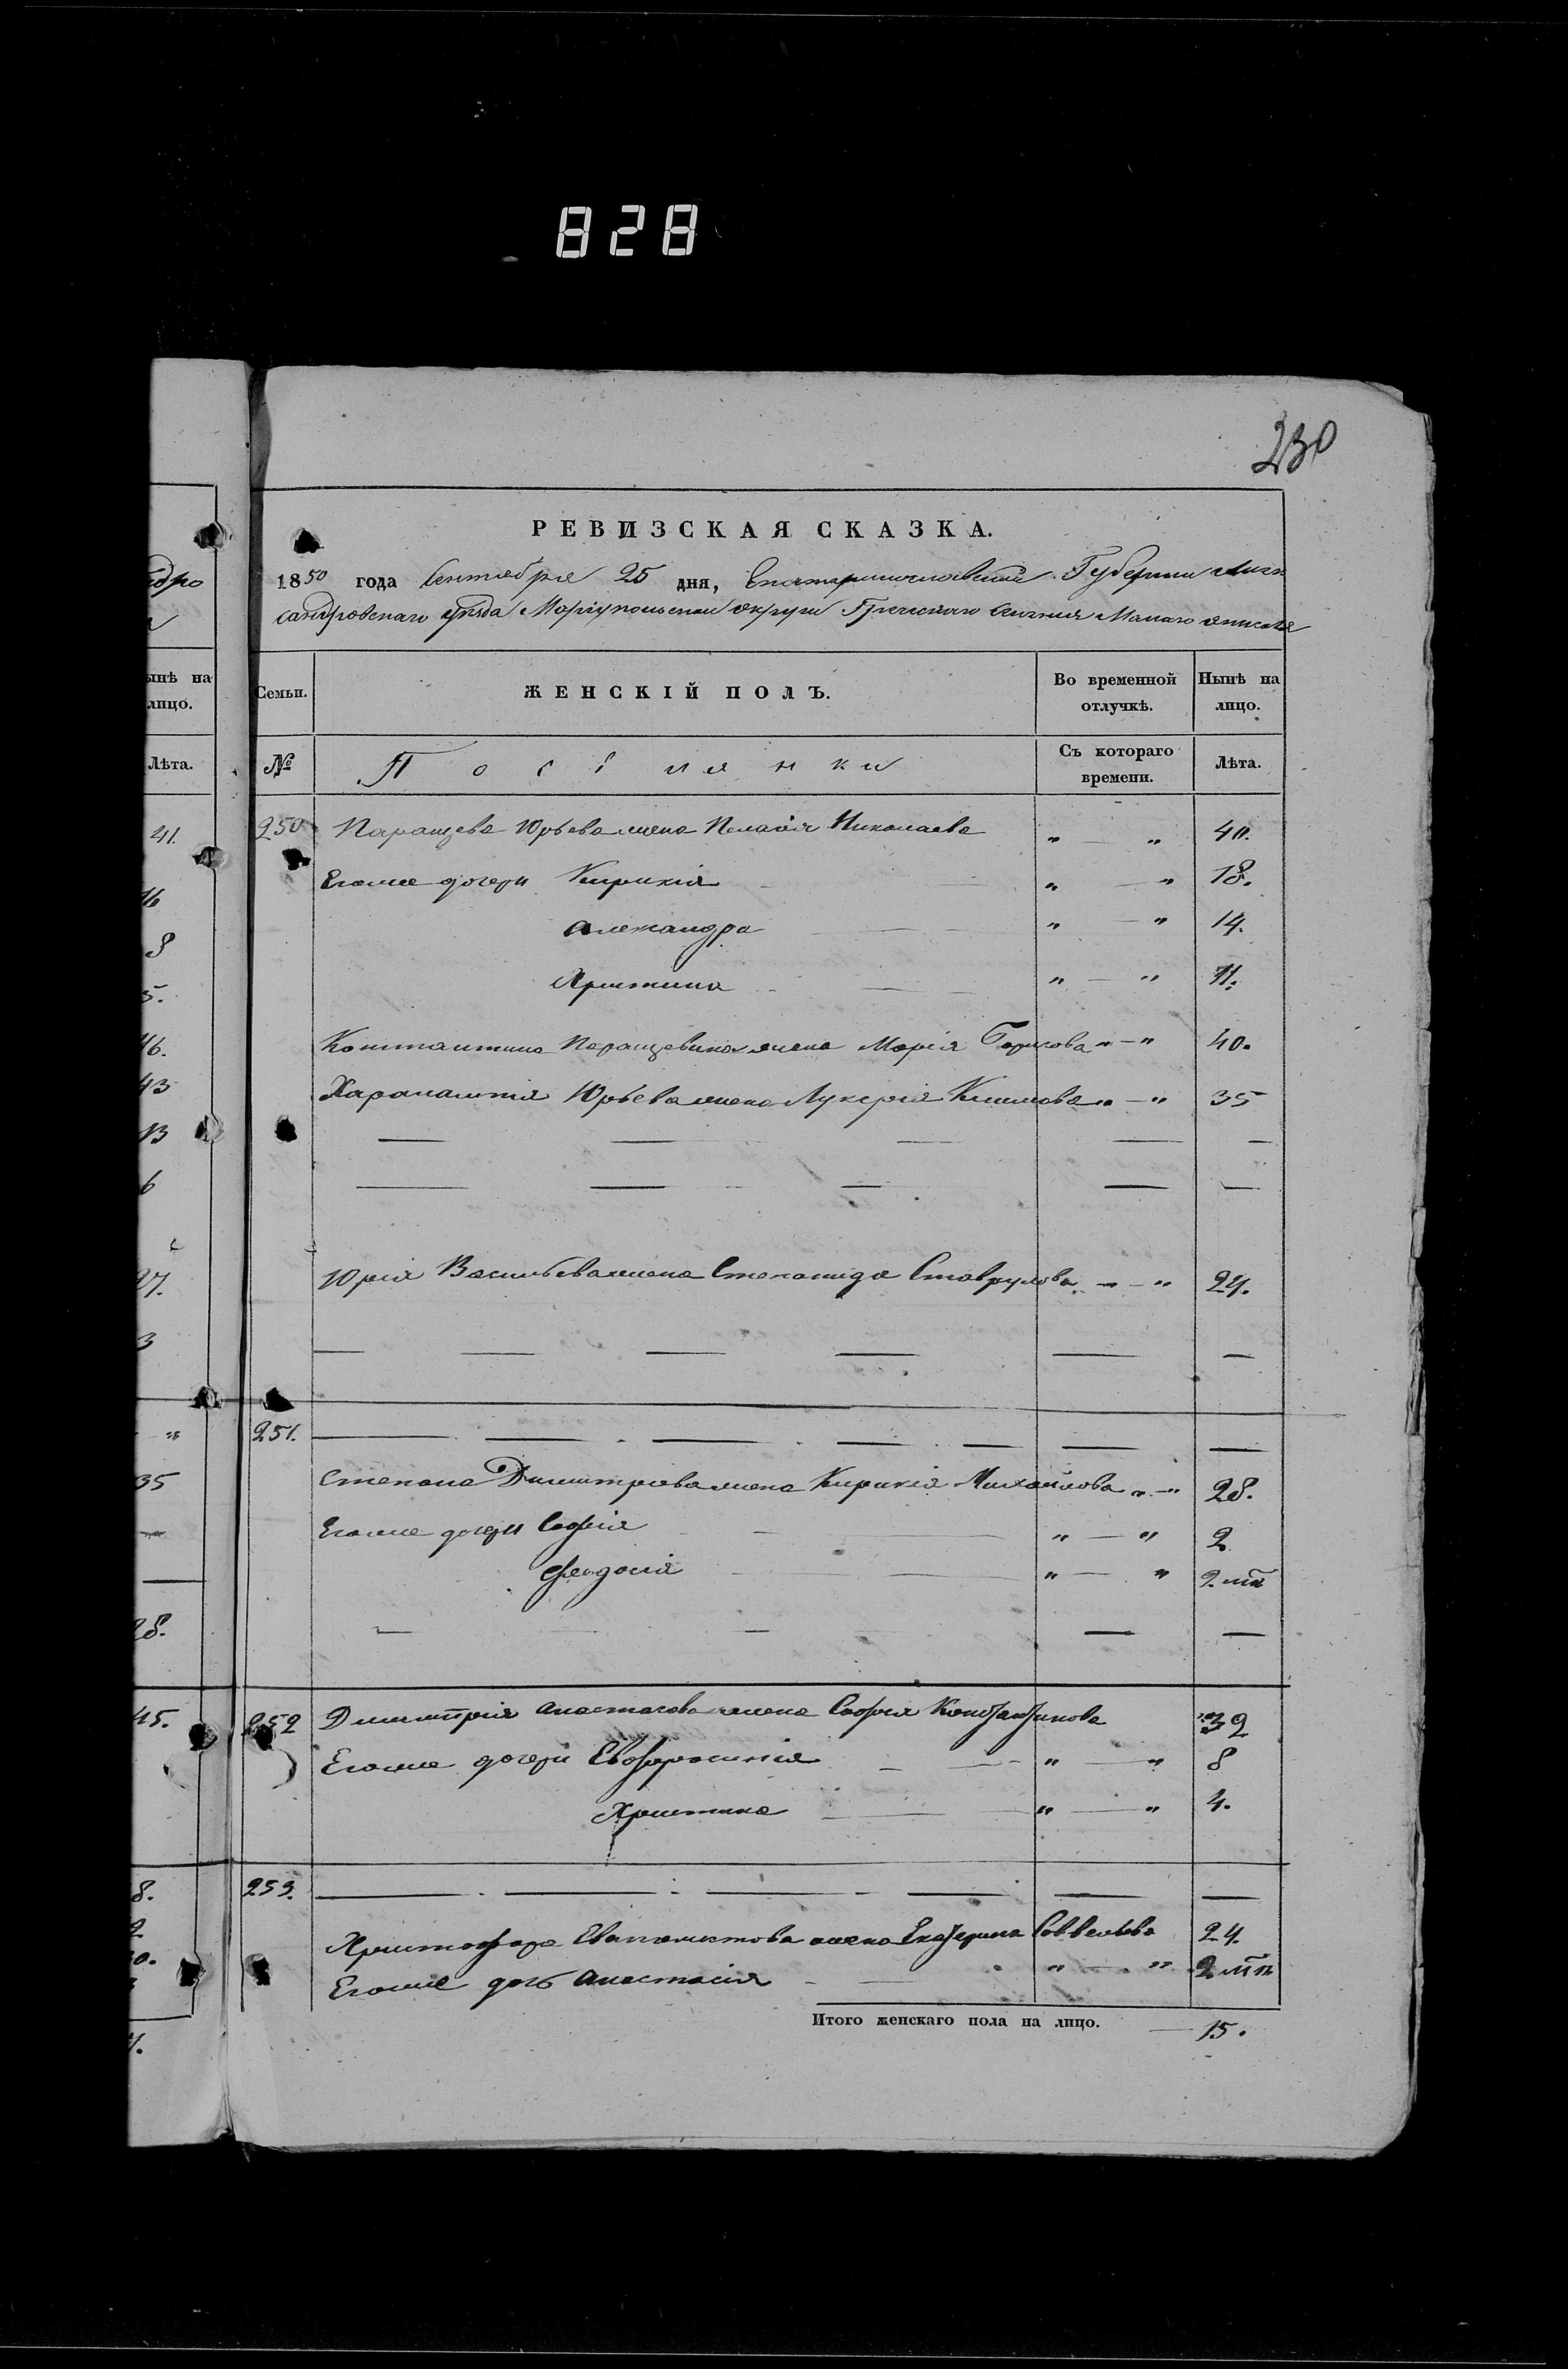 828
230
РЕВИЗСКАЯ СКАЗКА.
1850 года Сентября 25 дня, Екатеринославской Губернии Алек
сандровского уѣзда Маріупольской округи Греческаго селения Малаго Янисоля
ндро
ынѣ на
лицо.
Лѣта.
41.
16
8
5.
46.
43
13
6
27.
3
"
35
28.
45.
8.
2
30.
Семьи. ЖЕНСКІЙ ПОЛЪ. Во временной отлучкѣ. Нынѣ на лицо.
№ Посілянки Съ котораго времени. Лѣта.
250 Паращева Юрьева жена Пелагія Николаева " — " 40.
Егоже дочери Кирикія " — " 18.
Александра " — " 14.
Христина " — " 11.
Константина Паращевина жена Марія Борисова " — " 40.
Харалампія Юрьева жена Лукерія Климова " — " 35
Юрія Васильева жена Степанида Ставрулова " — " 24.
251.
Степана Димитрова жена Кирикія Михайлова " — " 28.
Егоже дочери Софія " — " 2
Феодосія " — " 2 мц
252 Димитрія Анастасова жена Софія Константинова 32
Егоже дочери Евфросинія " — " 8
Христина " — " 4.
253.
Христофора Евангелистова жена Екатерина Саввельева 24.
Егоже дочь Анастасія " — " 2 мц
Итого женскаго пола на лицо. — 15.